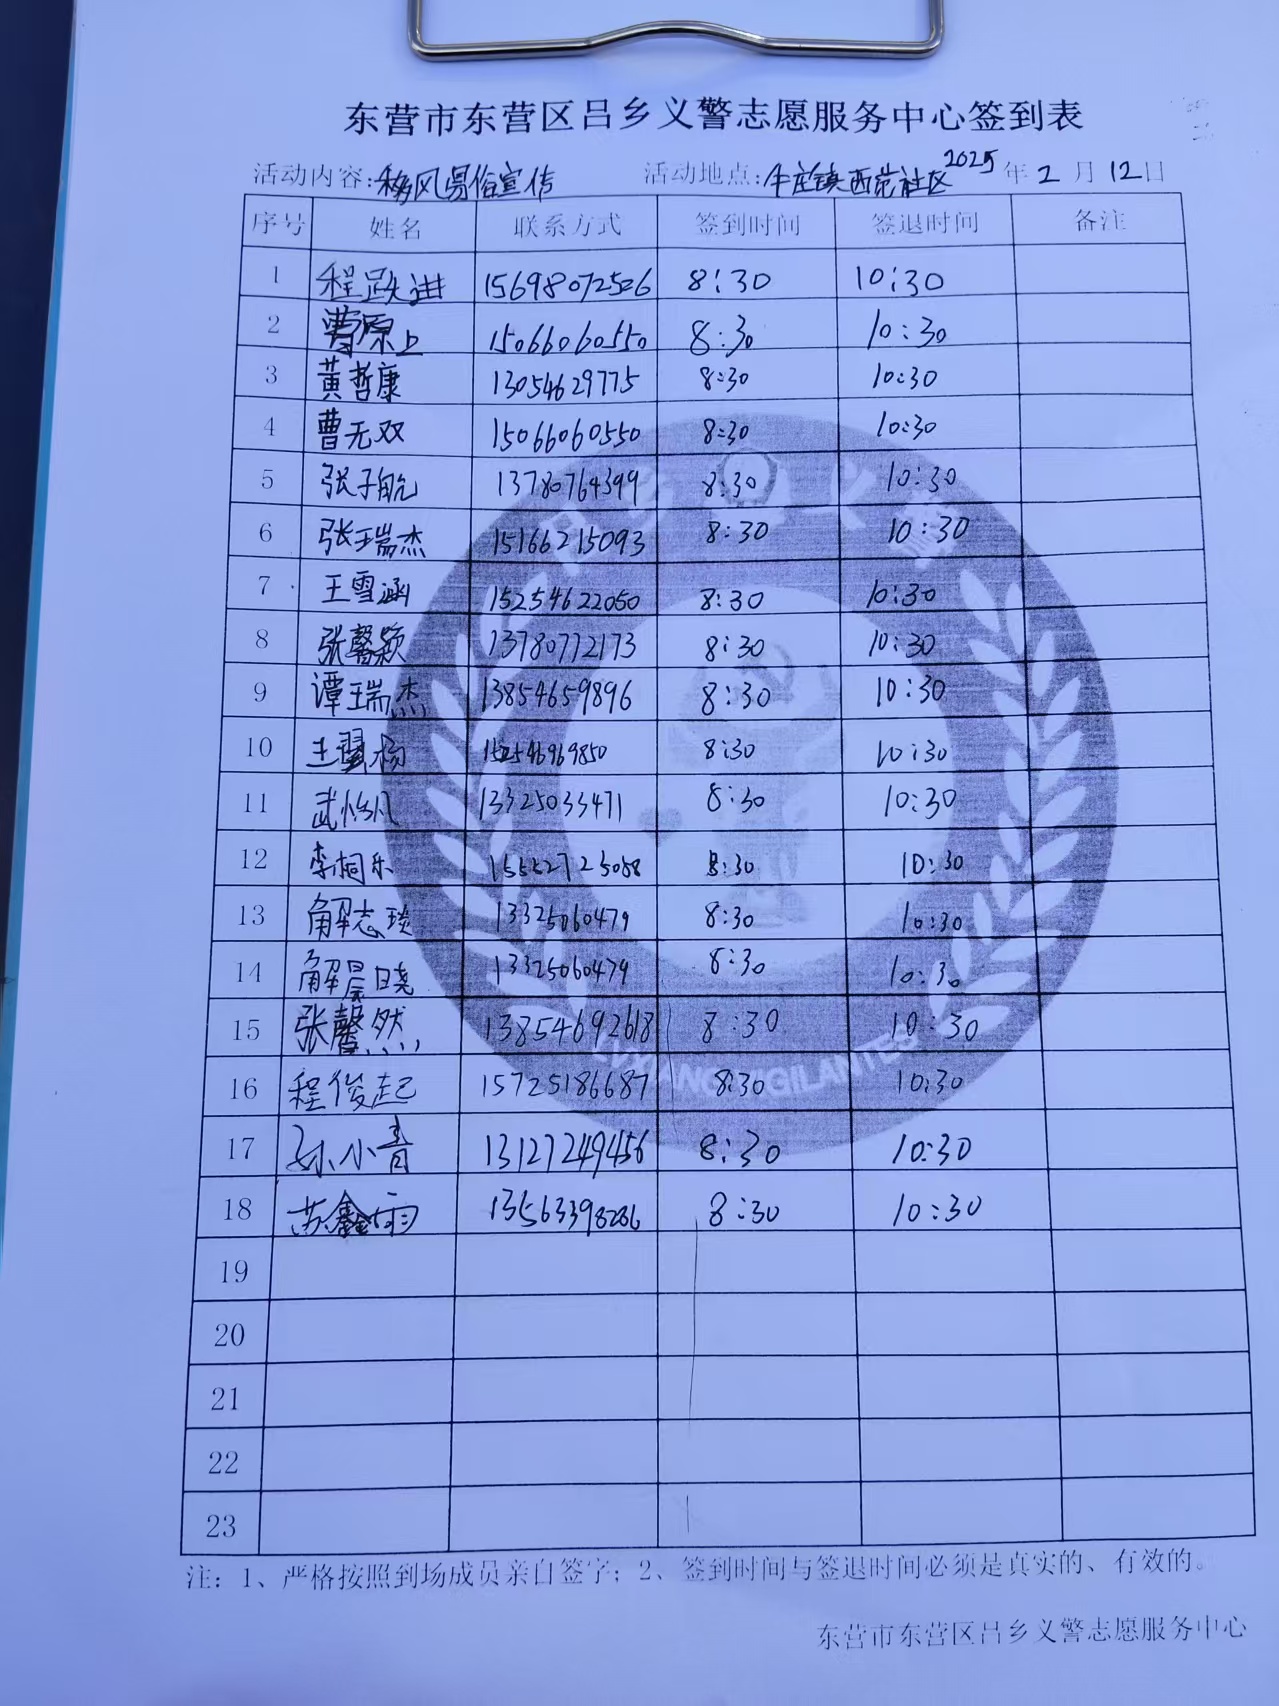 东营市东营区吕乡义警志愿服务中心签到表
活动内容:移风易俗宣传 活动地点:牛庄镇西范社区 2025年2月12日
序号 姓名 联系方式 签到时间 签退时间 备注
1 程跃进 15698072526 8:30 10:30
2 曹原上 15066060550 8:30 10:30
3 黄哲康 13054629775 8:30 10:30
4 曹无双 15066060550 8:30 10:30
5 张子航 13780764399 8:30 10:30
6 张瑞杰 15166215093 8:30 10:30
7 王雪涵 15254622050 8:30 10:30
8 张馨颖 13780772173 8:30 10:30
9 谭瑞杰 13854659896 8:30 10:30
10 王翼杨 152546969850 8:30 10:30
11 武怡凡 13325033471 8:30 10:30
12 李桐乐 8:30 10:30
13 解志琰 13325060479 8:30 10:30
14 解晨晓 13325060479 8:30 10:30
15 张馨然 13854692618 8:30 10:30
16 程俊起 15725186687 8:30 10:30
17 孙小青 13127249456 8:30 10:30
18 苏鑫雨 13563398286 8:30 10:30
19
20
21
22
23
注:1、严格按照到场成员亲自签字;2、签到时间与签退时间必须是真实的、有效的。
东营市东营区吕乡义警志愿服务中心